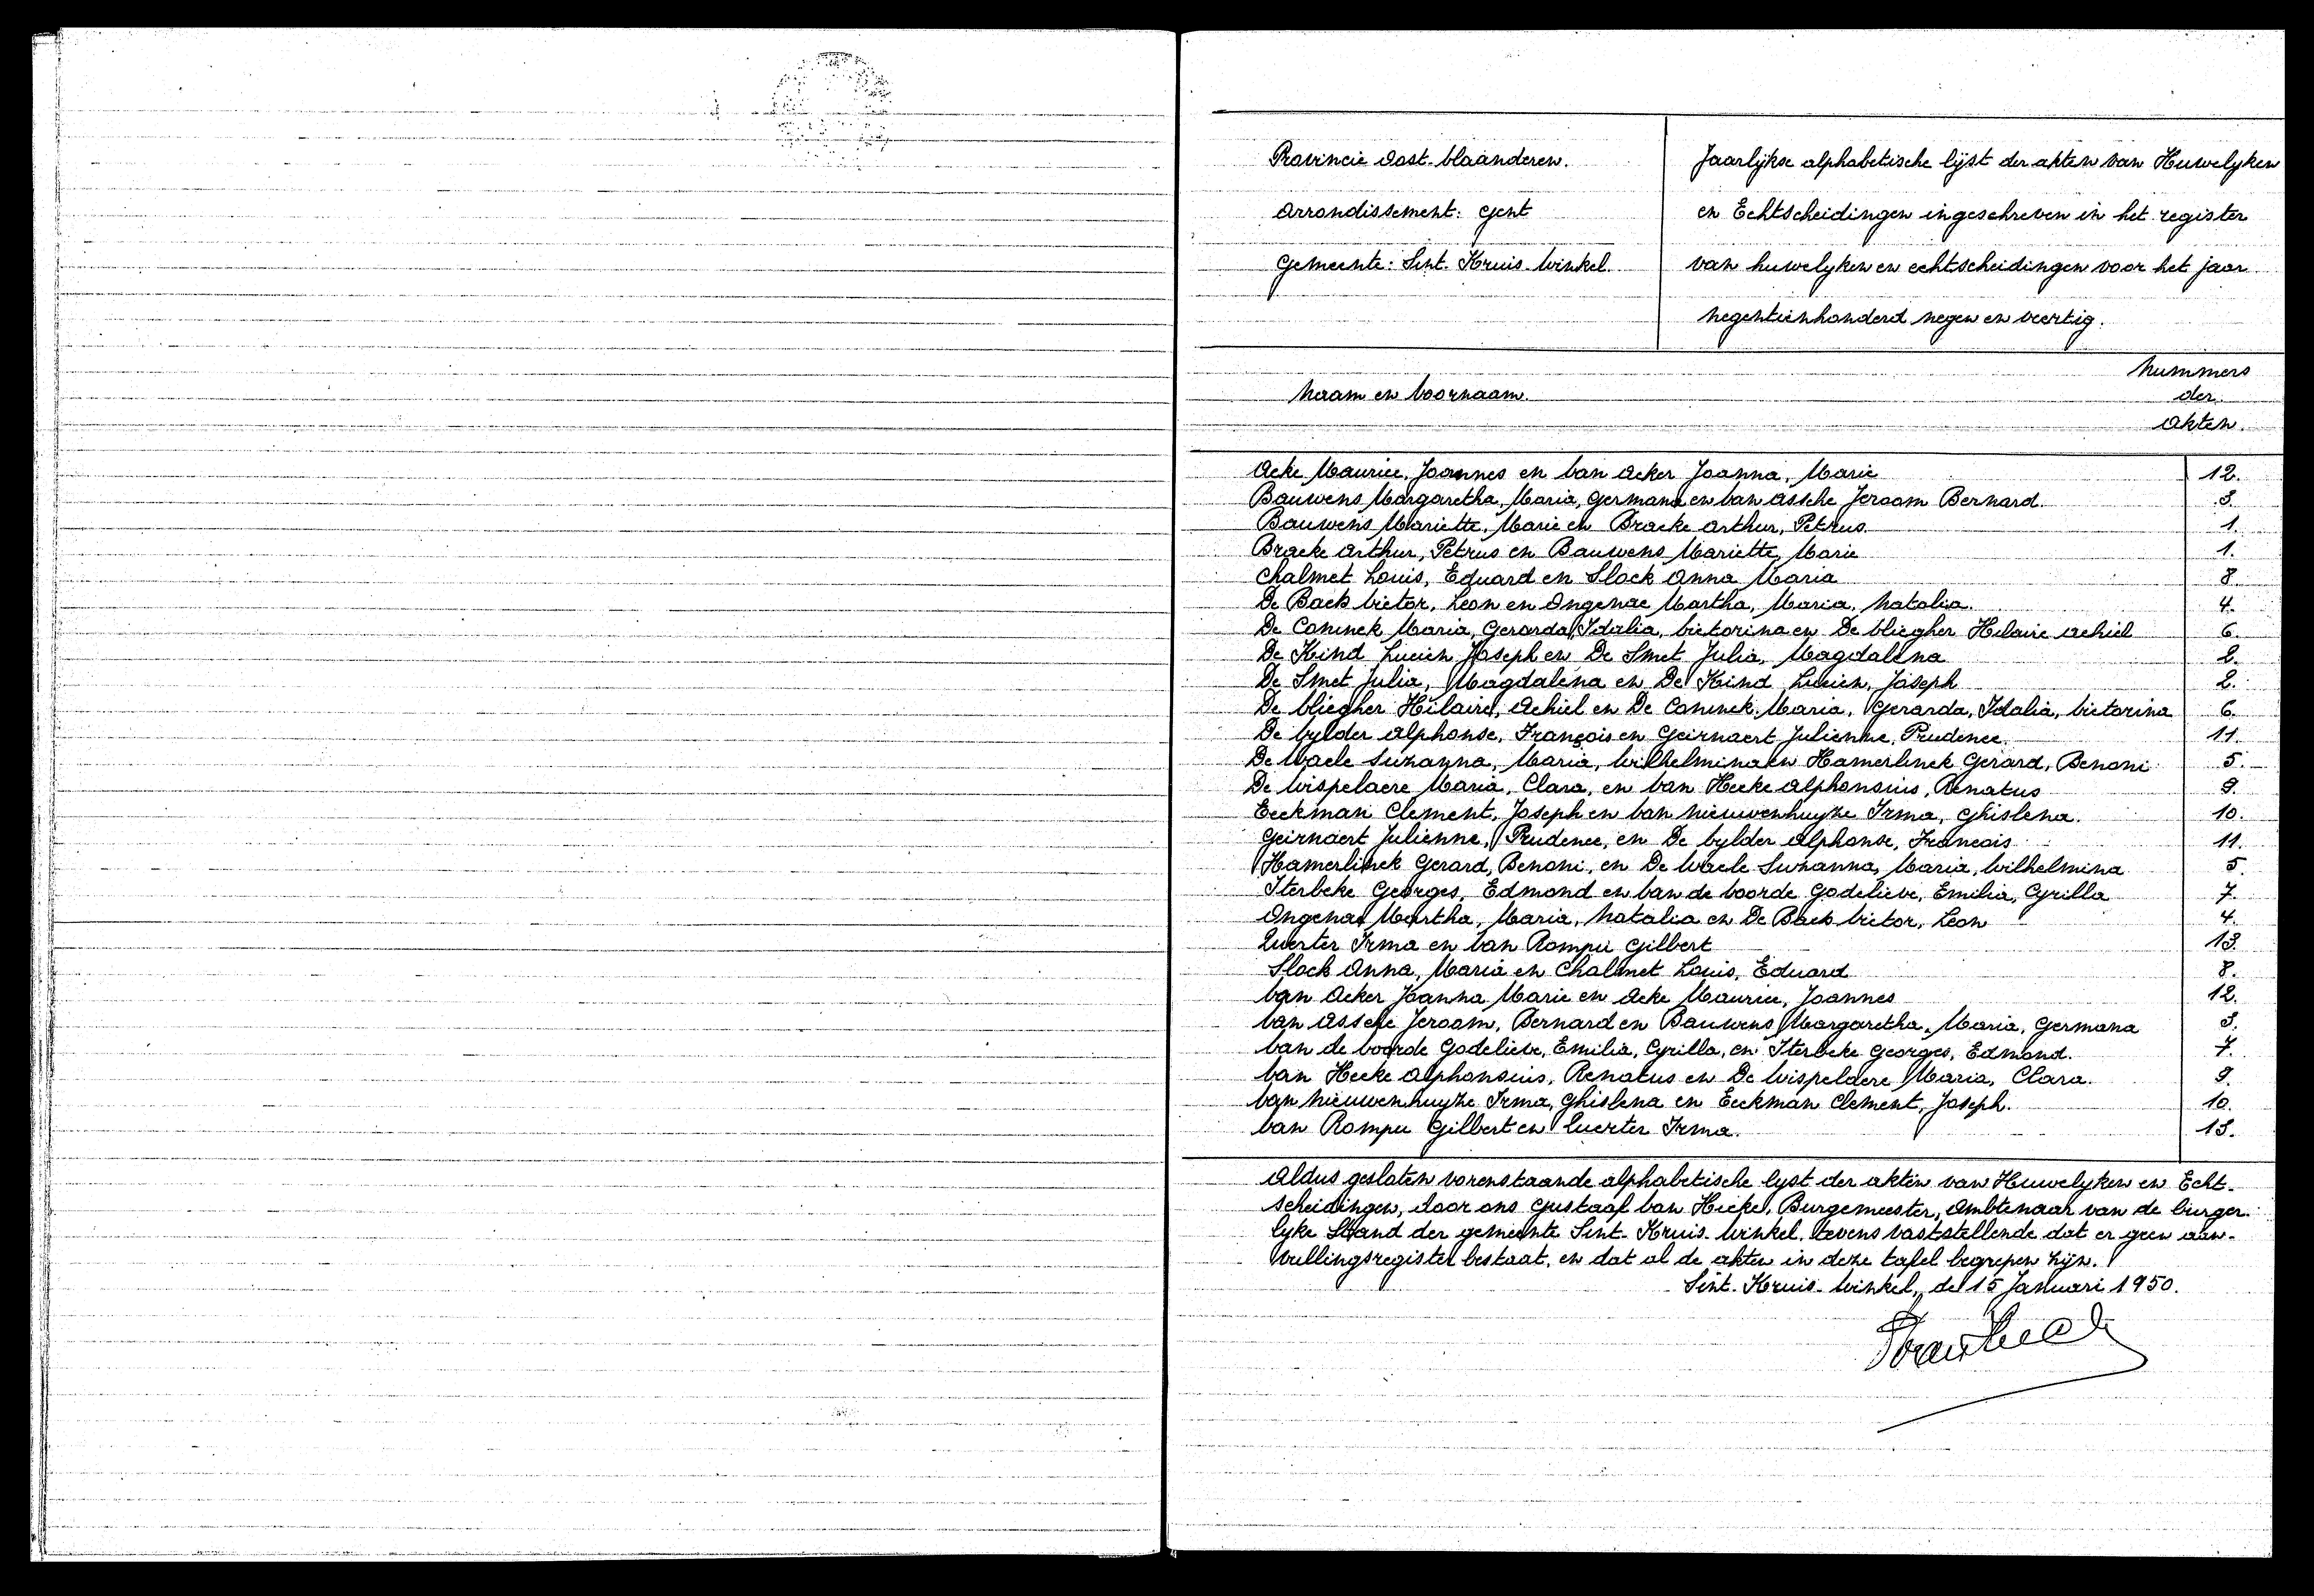 Provincie Oost-Vlaanderen.
Arrondissement: Gent
Gemeente: Sint-Kruis-Winkel
Jaarlijkse alphabetische lijst der akten van Huwelyken
en Echtscheidingen ingeschreven in het register
van huwelyken en echtscheidingen voor het jaar
negentienhonderd negen en veertig.
Naam en Voornaam.
Nummers
der
Akten.
Acke Maurice, Joannes en Van Acker Joanna, Marie 12.
Bauwens Margaretha, Maria, Germana en Van Assche Jeroom Bernard. 3.
Bauwens Mariette, Marie en Bracke Arthur, Petrus. 1.
Bracke Arthur, Petrus en Bauwens Mariette, Marie 1.
Chalmet Louis, Eduard en Slock Anna Maria 8
De Back Victor, Leon en Ongenae Martha, Maria, Natalia. 4.
De Coninck Maria, Gerarda, Idalia, Victorina en De Vliegher Hilaire Achiel 6.
De Kind Lucien Joseph en De Smet Julia, Magdalena 2.
De Smet Julia, Magdalena en De Kind Lucien, Joseph 2.
De Vliegher Hilaire, Achiel en De Coninck Maria, Gerarda, Idalia, Victorina 6.
De Vylder Alphonse, François en Geirnaert Julienne, Prudence. 11.
De Waele Suzanna, Maria, Wilhelmina en Hamerlinck Gerard, Benoni 5.
De Wispelaere Maria, Clara, en Van Hecke Alphonsius, Renatus 9.
Eeckman Clement, Joseph en Van Nieuwenhuyze Irma, Ghislena. 10.
Geirnaert Julienne, Prudence, en De Vylder Alphonse, Francois 11.
Hamerlinck Gerard, Benoni, en De Waele Suzanna, Maria, Wilhelmina 5.
Iterbeke Georges, Edmond en Van de Voorde Godelieve, Emilia, Cyrilla 7.
Ongenae Martha, Maria, Natalia en De Back Victor, Leon 4.
Querter Irma en Van Rompu Gilbert 13.
Slock Anna, Maria en Chalmet Louis, Eduard 8.
Van Acker Joanna Marie en Acke Maurice, Joannes 12.
Van Assche Jeroom, Bernard en Bauwens Margaretha, Maria, Germana 3.
Van de Voorde Godelieve, Emilia, Cyrilla, en Iterbeke Georges, Edmond. 7.
Van Hecke Alphonsius, Renatus en De Wispelaere Maria, Clara. 9.
Van Nieuwenhuyze Irma, Ghislena en Eeckman Clement, Joseph. 10.
Van Rompu Gilbert en Querter Irma. 13.
Aldus gesloten vorenstaande alphabetische lyst der akten van Huwelyken en Echt-
scheidingen, door ons Gustaaf Van Hecke, Burgemeester, Ambtenaar van de burger-
lyke Stand der gemeente Sint-Kruis-Winkel, tevens vaststellende dat er geen aan-
vullingsregister bestaat, en dat al de akten in deze tafel begrepen zijn.
Sint-Kruis-Winkel, de 15 Januari 1950.